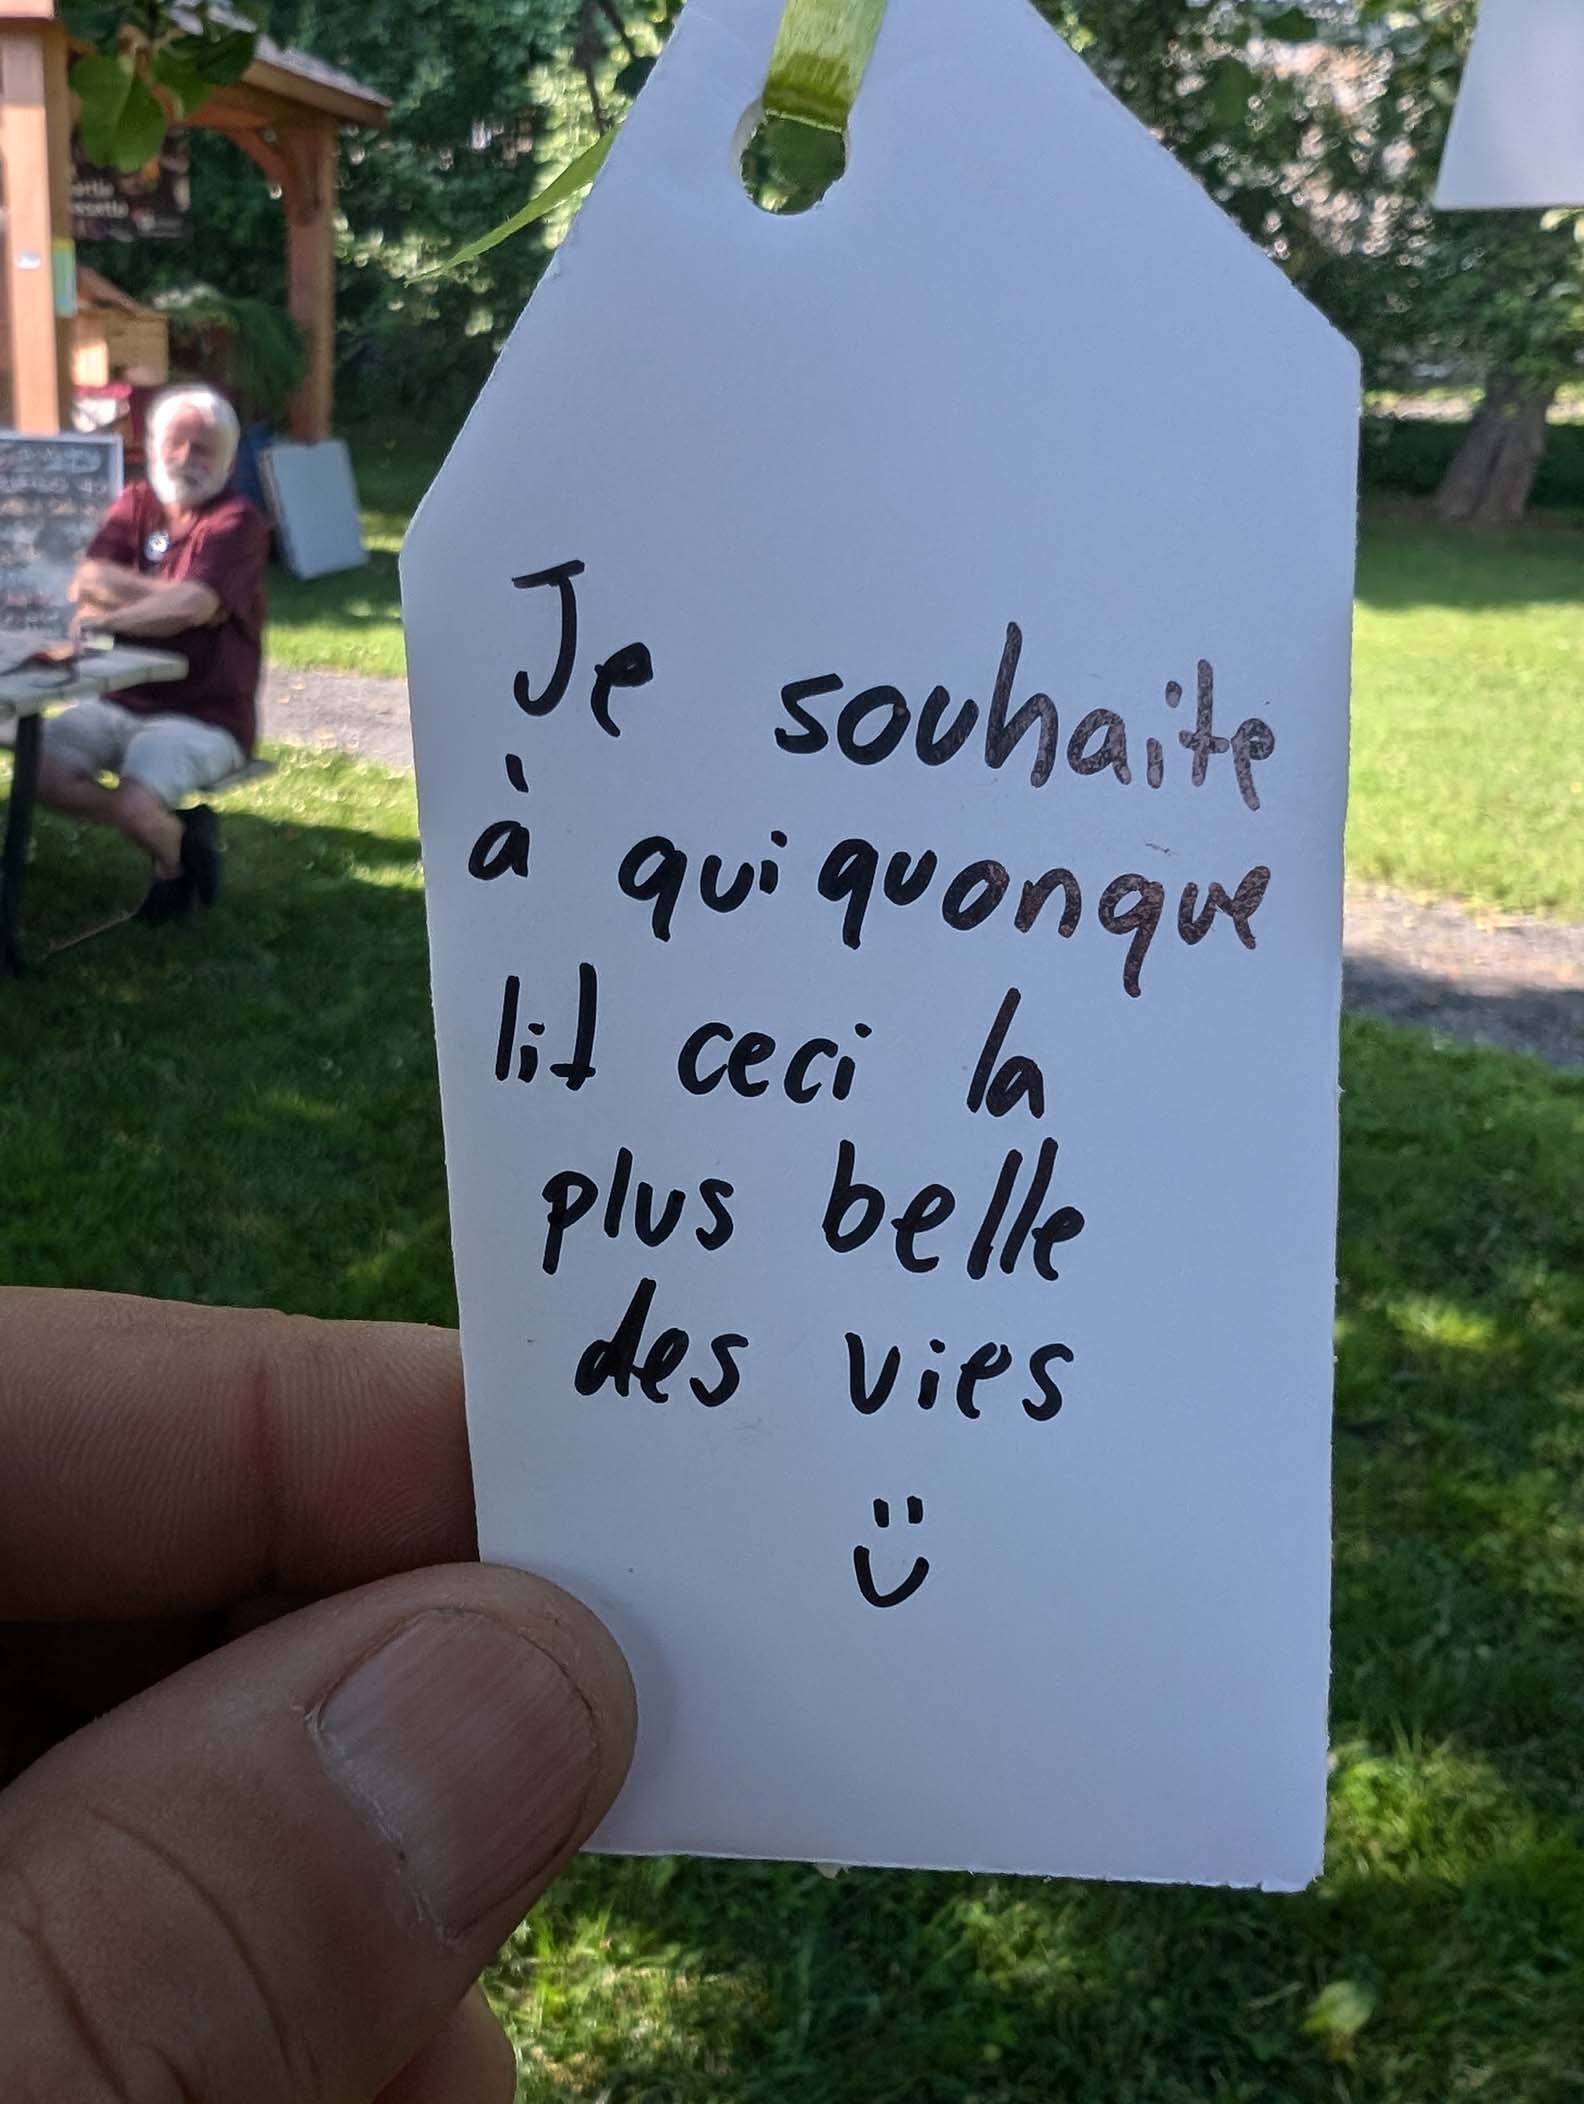 Je souhaite
à quiquonque
lit ceci la
plus belle
des vies